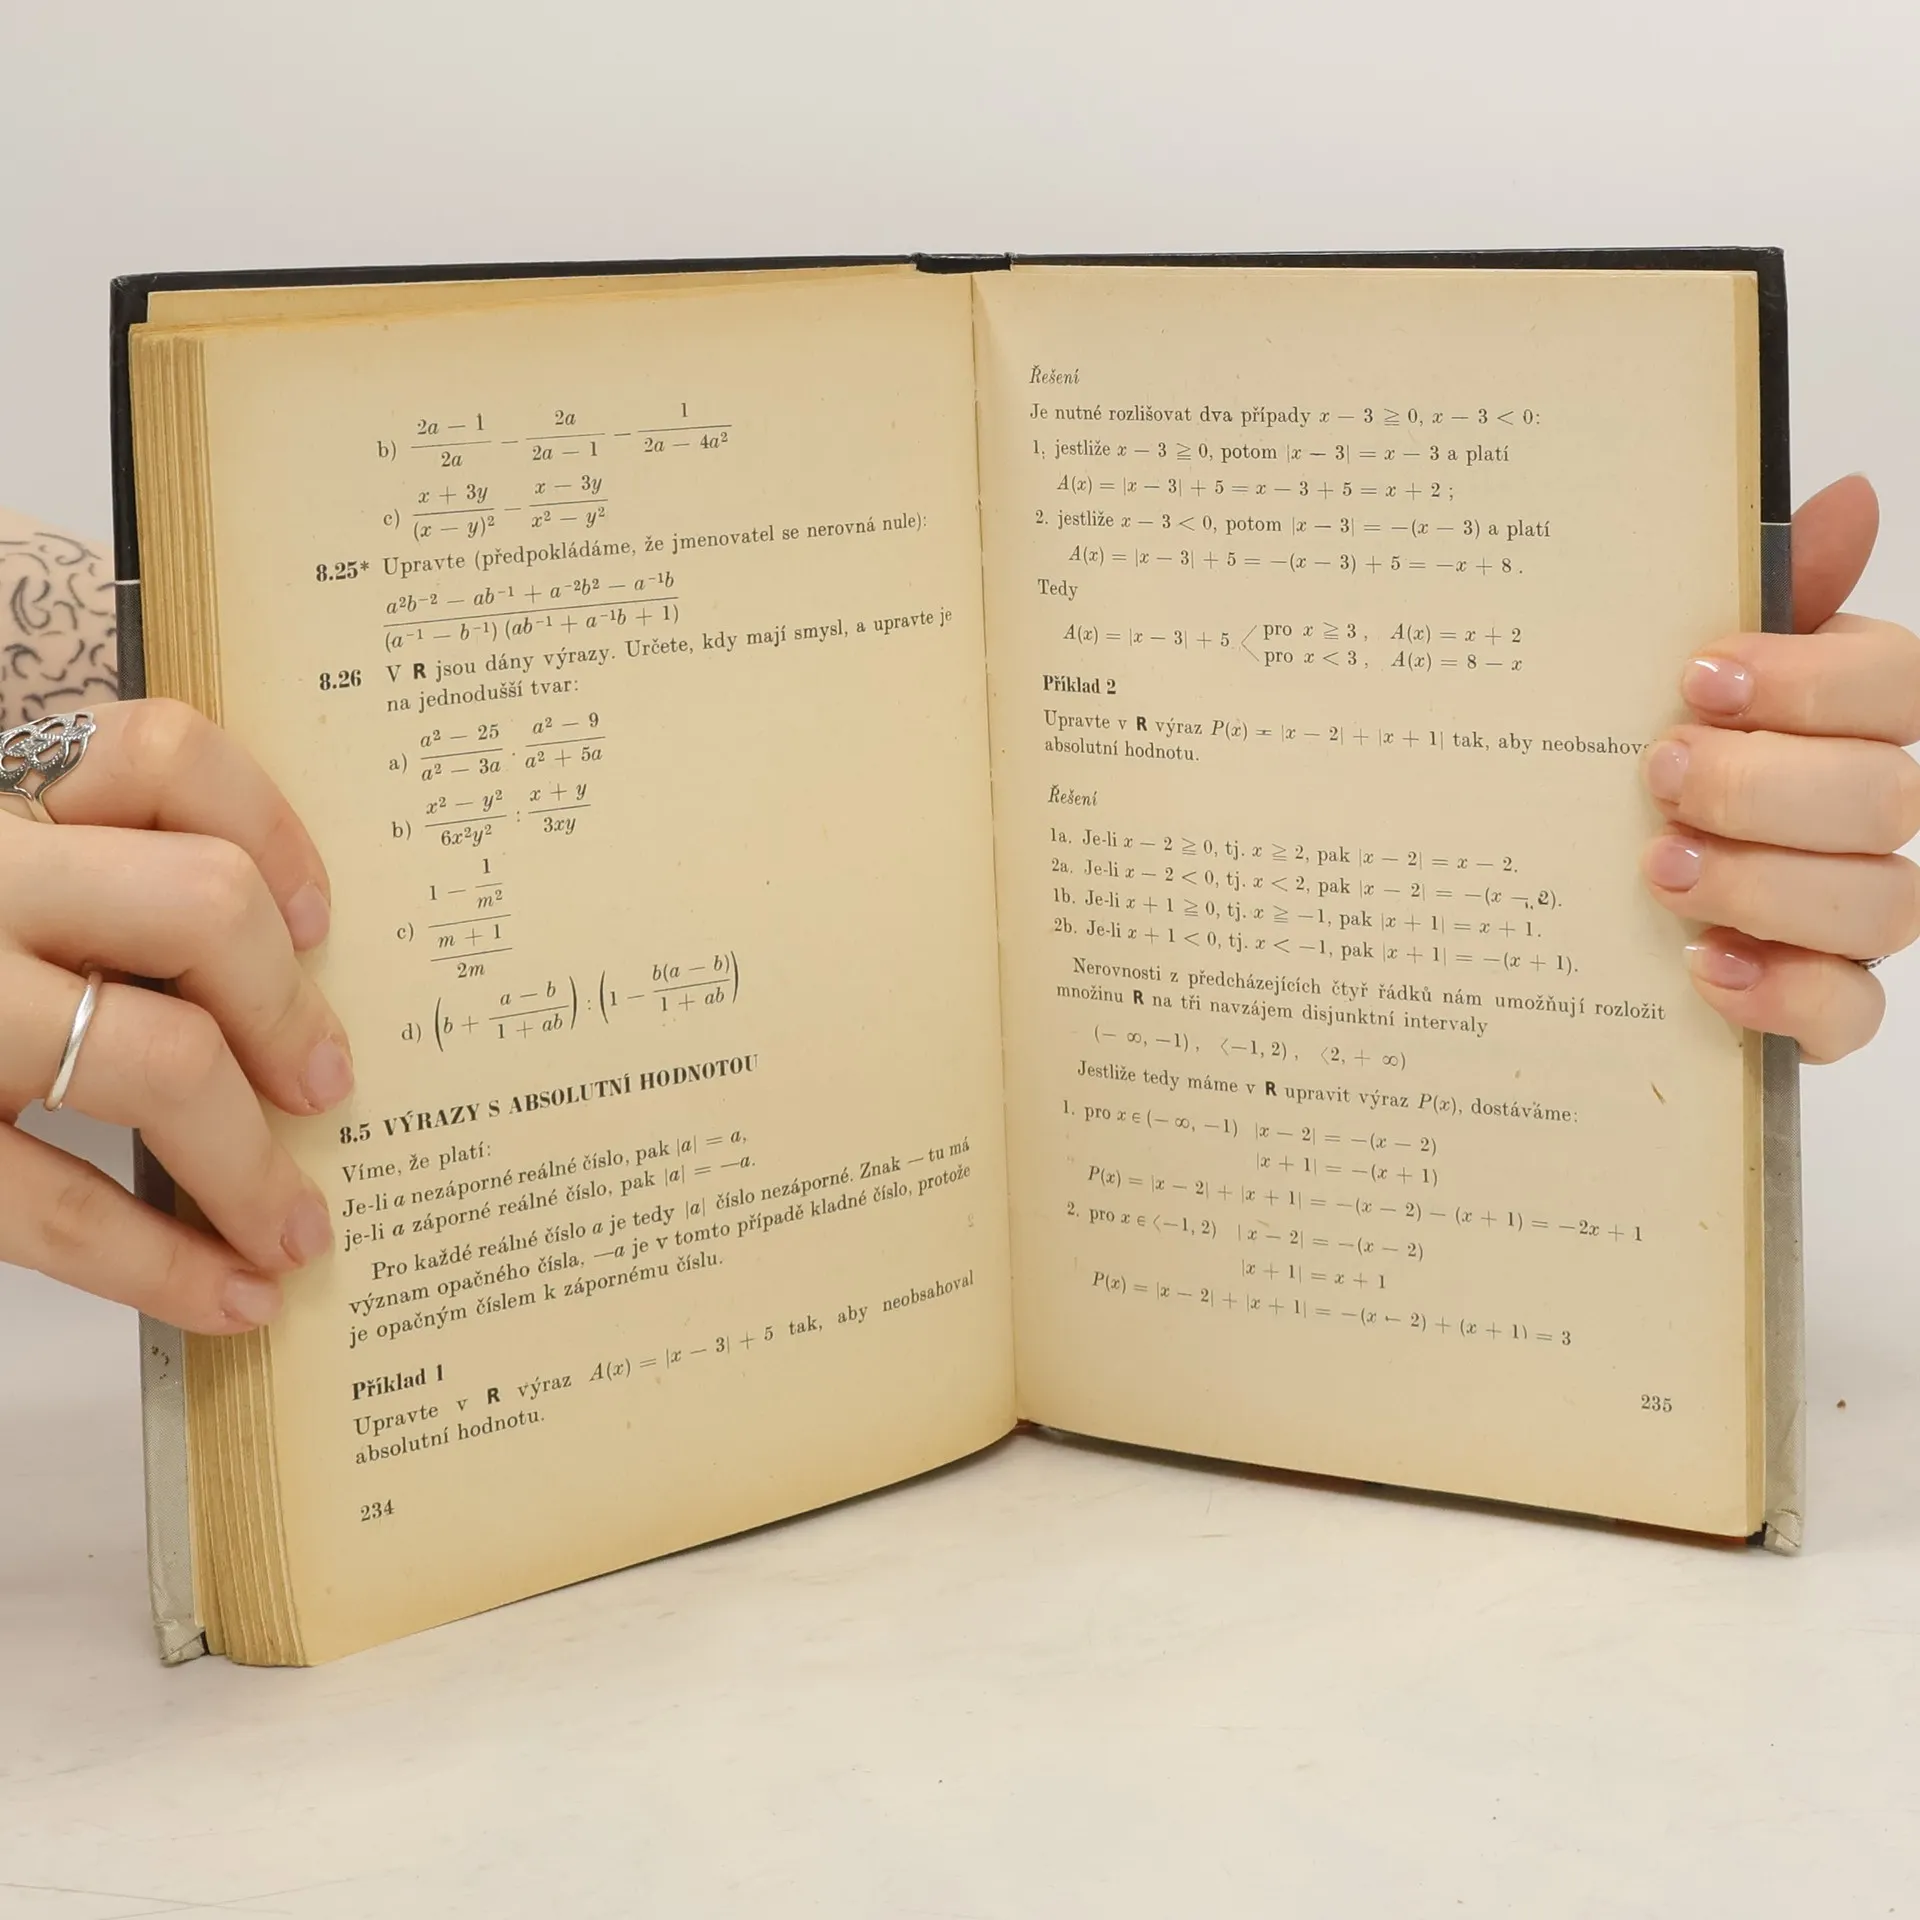 b) (2a − 1)/(2a) − (2a)/(2a − 1) − 1/(2a − 4a²)
c) (x + 3y)/((x − y)²) − (x − 3y)/(x² − y²)
8.25* Upravte (předpokládáme, že jmenovatel se nerovná nule):
(a²b⁻² − ab⁻¹ + a⁻²b² − a⁻¹b)/((a⁻¹ − b⁻¹) (ab⁻¹ + a⁻¹b + 1))
8.26 V R jsou dány výrazy. Určete, kdy mají smysl, a upravte je
na jednodušší tvar:
a) (a² − 25)/(a² − 3a) · (a² − 9)/(a² + 5a)
b) (x² − y²)/(6x²y²) : (x + y)/(3xy)
c) (1 − 1/m²)/((m + 1)/(2m))
d) (b + (a − b)/(1 + ab)) : (1 − b(a − b)/(1 + ab))
8.5 VÝRAZY S ABSOLUTNÍ HODNOTOU
Víme, že platí:
Je-li a nezáporné reálné číslo, pak |a| = a,
je-li a záporné reálné číslo, pak |a| = −a.
Pro každé reálné číslo a je tedy |a| číslo nezáporné. Znak — tu má
význam opačného čísla, —a je v tomto případě kladné číslo, protože
je opačným číslem k zápornému číslu.
Příklad 1
Upravte v R výraz A(x) = |x − 3| + 5 tak, aby neobsahoval
absolutní hodnotu.
234
Řešení
Je nutné rozlišovat dva případy x − 3 ≧ 0, x − 3 < 0:
1. jestliže x − 3 ≧ 0, potom |x − 3| = x − 3 a platí
A(x) = |x − 3| + 5 = x − 3 + 5 = x + 2 ;
2. jestliže x − 3 < 0, potom |x − 3| = −(x − 3) a platí
A(x) = |x − 3| + 5 = −(x − 3) + 5 = −x + 8 .
Tedy
A(x) = |x − 3| + 5 < pro x ≧ 3 , A(x) = x + 2
pro x < 3 , A(x) = 8 − x
Příklad 2
Upravte v R výraz P(x) = |x − 2| + |x + 1| tak, aby neobsahov
absolutní hodnotu.
Řešení
1a. Je-li x − 2 ≧ 0, tj. x ≧ 2, pak |x − 2| = x − 2.
2a. Je-li x − 2 < 0, tj. x < 2, pak |x − 2| = −(x − 2).
1b. Je-li x + 1 ≧ 0, tj. x ≧ −1, pak |x + 1| = x + 1.
2b. Je-li x + 1 < 0, tj. x < −1, pak |x + 1| = −(x + 1).
Nerovnosti z předcházejících čtyř řádků nám umožňují rozložit
množinu R na tři navzájem disjunktní intervaly
(− ∞, −1) , ⟨−1, 2) , ⟨2, + ∞)
Jestliže tedy máme v R upravit výraz P(x), dostáváme:
1. pro x ∈ (− ∞, −1) |x − 2| = −(x − 2)
|x + 1| = −(x + 1)
P(x) = |x − 2| + |x + 1| = −(x − 2) − (x + 1) = −2x + 1
2. pro x ∈ ⟨−1, 2) |x − 2| = −(x − 2)
|x + 1| = x + 1
P(x) = |x − 2| + |x + 1| = −(x − 2) + (x + 1) = 3
235